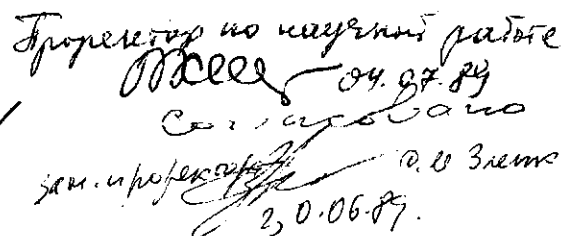 Проректор по научной работе
04.07.89
Согласовано
зам. проректора
20.06.89.